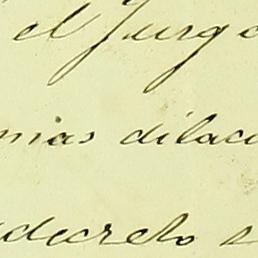 el Juzga
mias dilaci
decreto s